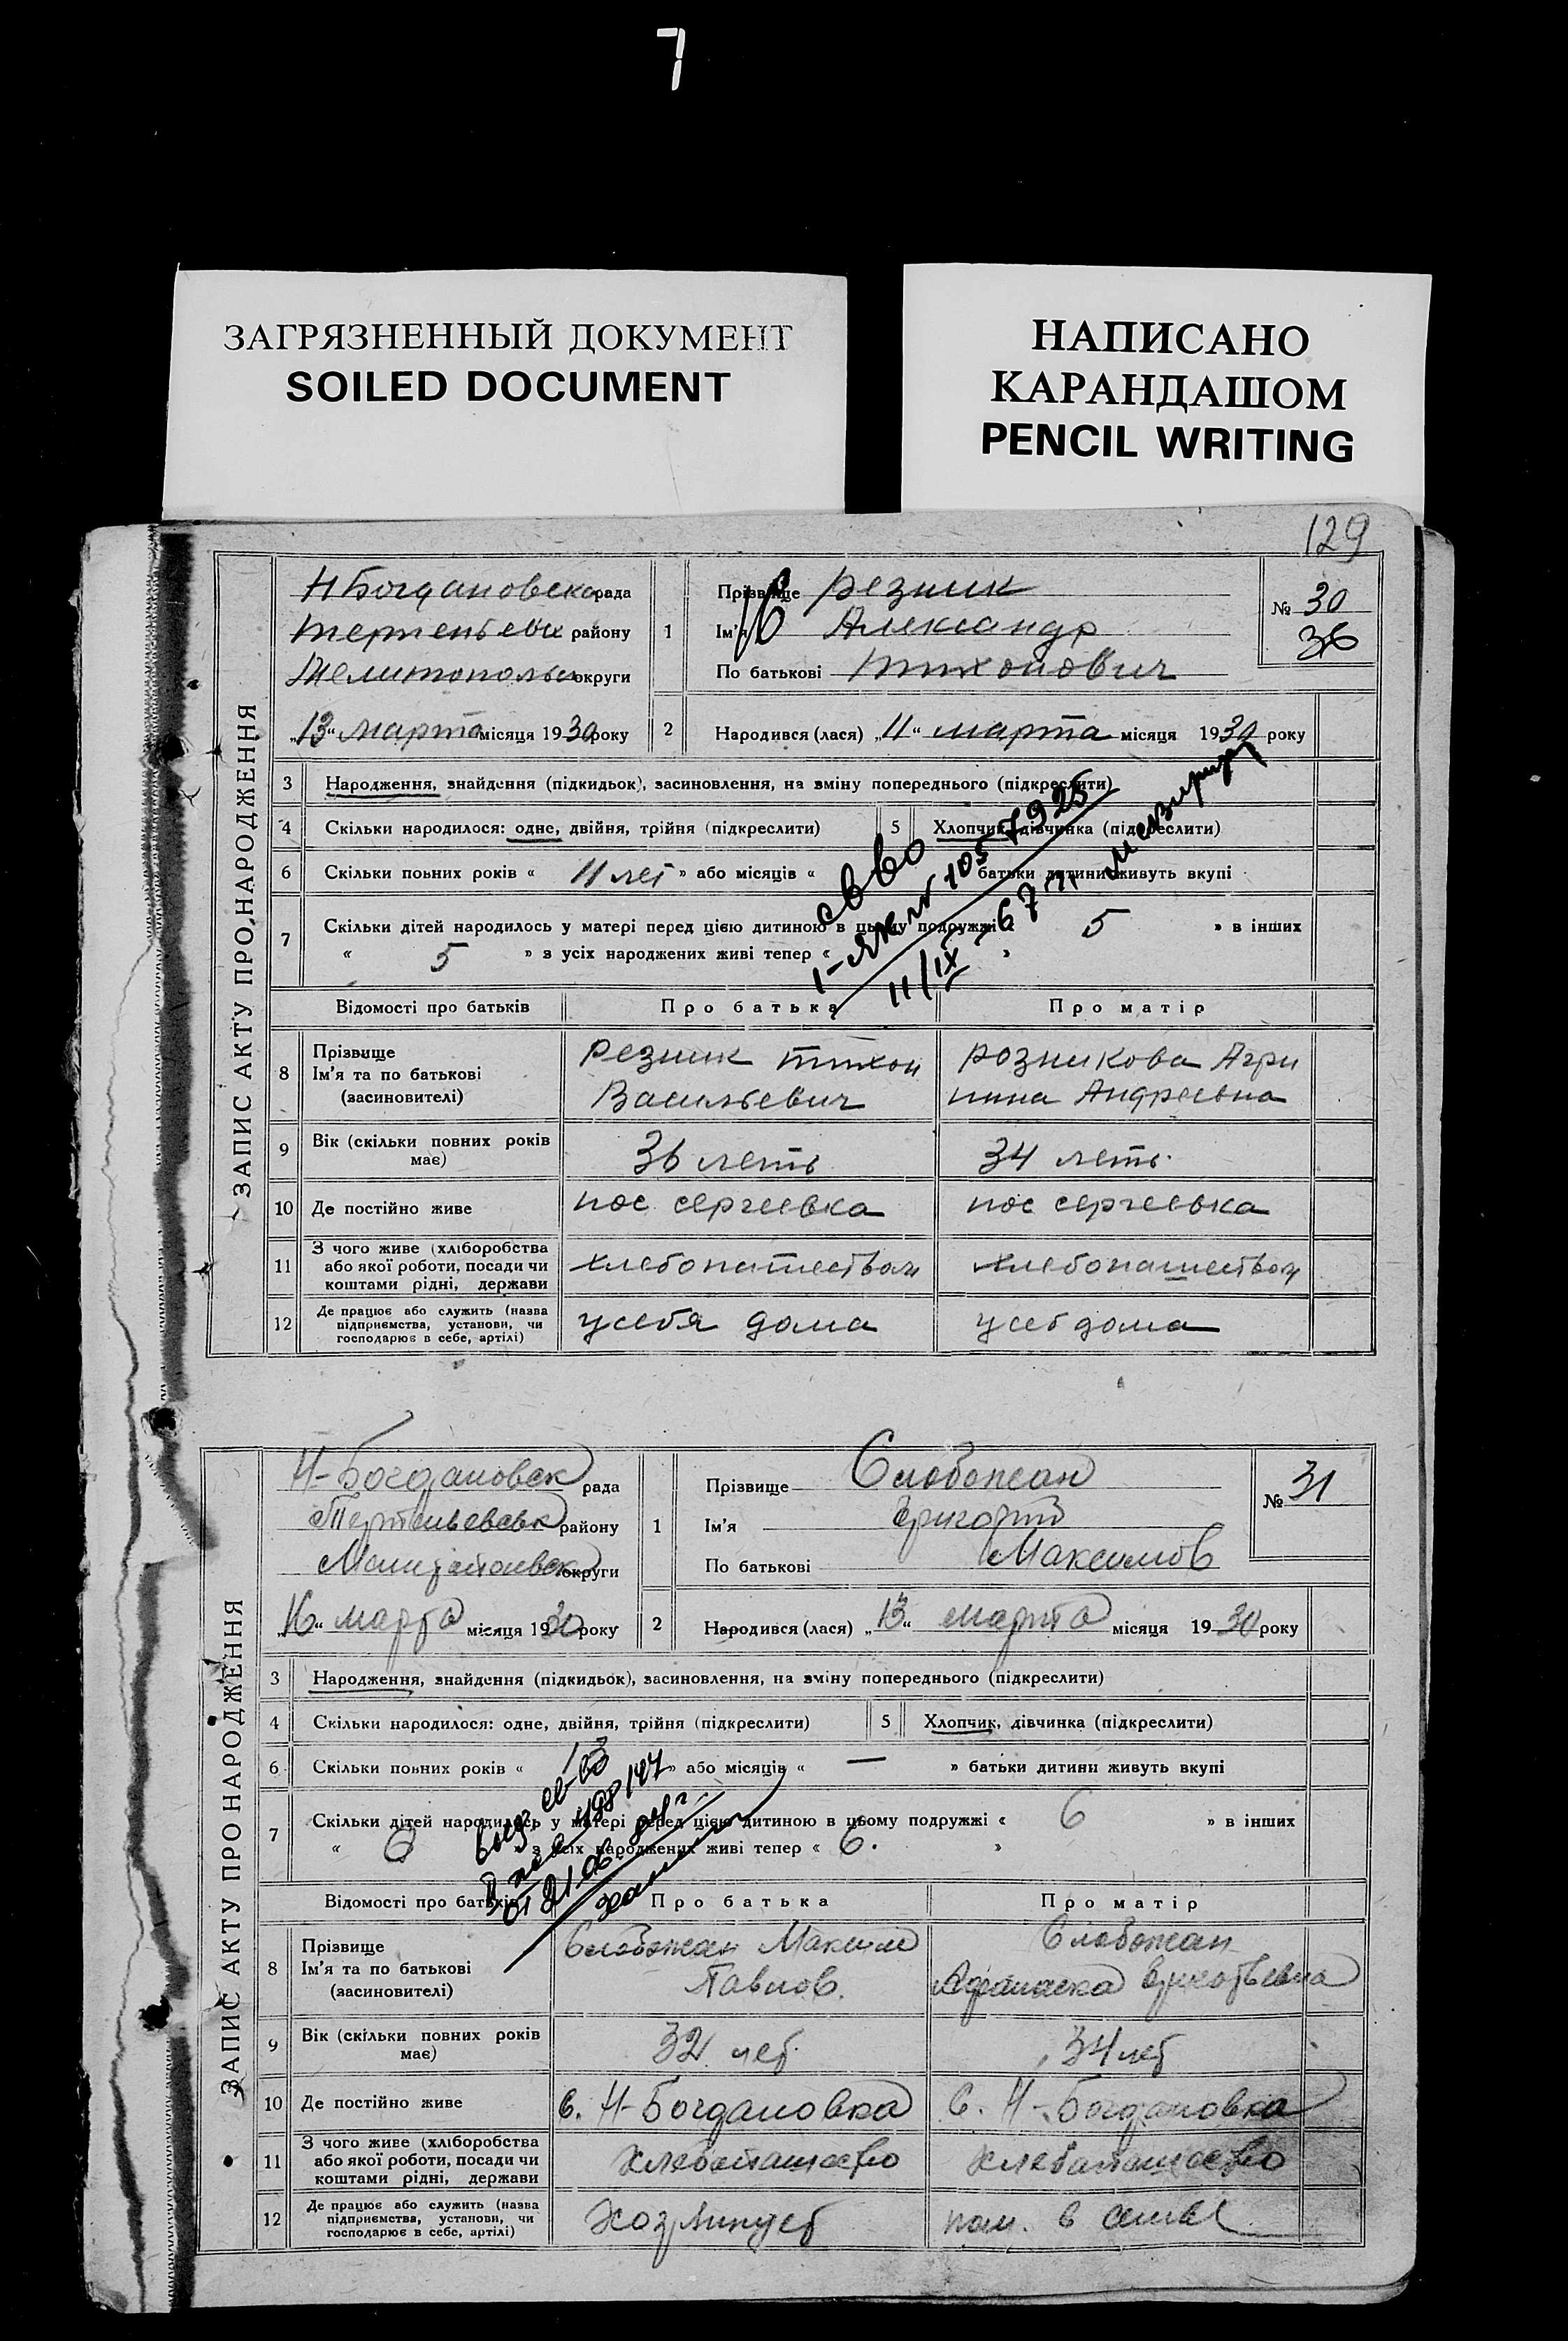 7
ЗАГРЯЗНЕННЫЙ ДОКУМЕНТ
SOILED DOCUMENT
НАПИСАНО
КАРАНДАШОМ
PENCIL WRITING
129
ЗАПИС АКТУ ПРО НАРОДЖЕННЯ
Н Богдановска рада
района району
Мелитопольс округи
„13“ марта місяця 1930 року
1
Прізвище Резник
Ім'я Александр
По батькові Тихонович
№ 30
2 Народився (лася) „11“ марта місяця 1930 року
3 Народження, знайдення (підкидьок), засиновлення, на зміну попереднього (підкреслити)
4 Скільки народилося: одне, двійня, трійня (підкреслити)
5 Хлопчик, дівчинка (підкреслити)
6 Скільки повних років « 11 лет » або місяців « батьки дитини живуть вкупі
7 Скільки дітей народилось у матері перед цією дитиною в цьому подружжі « 5 » в інших
« 5 » з усіх народжених живі тепер « »
Відомості про батьків Про батька Про матір
8 Прізвище
Ім'я та по батькові
(засновителі)
Резник Тихон
Васильевич
Розникова Агри
пина Андреевна
9 Вік (скільки повних років
має)
36 леть
34 леть
10 Де постійно живе
пос сергеевка
пос сергеевка
11 З чого живе (хліборобства
або якої роботи, посади чи
коштами рідні, держави
хлебопашеством
хлебопашеством
12 Де працює або служить (назва
підприємства, установи, чи
господарює в себе, артілі)
у себя дома
у себ дома
ЗАПИС АКТУ ПРО НАРОДЖЕННЯ
Н-Богдановск рада
району
округи
„16“ марта місяця 1930 року
1
Прізвище Слобожан
Ім'я Григорий
По батькові Максимов
№ 31
2 Народився (лася) „13“ марта місяця 1930 року
3 Народження, знайдення (підкидьок), засиновлення, на зміну попереднього (підкреслити)
4 Скільки народилося: одне, двійня, трійня (підкреслити)
5 Хлопчик, дівчинка (підкреслити)
6 Скільки повних років « 13 » або місяців « — » батьки дитини живуть вкупі
7 Скільки дітей народилось у матері перед цією дитиною в цьому подружжі « 6 » в інших
« 0 » з усіх народжених живі тепер « 6. »
Відомості про батьків Про батька Про матір
8 Прізвище
Ім'я та по батькові
(засиновителі)
Слобожан Максим
Павлов.
Слобожан
9 Вік (скільки повних років
має)
32 лет
34 лет
10 Де постійно живе
с. Н-Богдановка
с. Н-Богдановка
11 З чого живе (хліборобства
або якої роботи, посади чи
коштами рідні, держави
Хлебопашество
Хлебопашество
12 Де працює або служить (назва
підприємства, установи, чи
господарює в себе, артілі)
пом. в семье